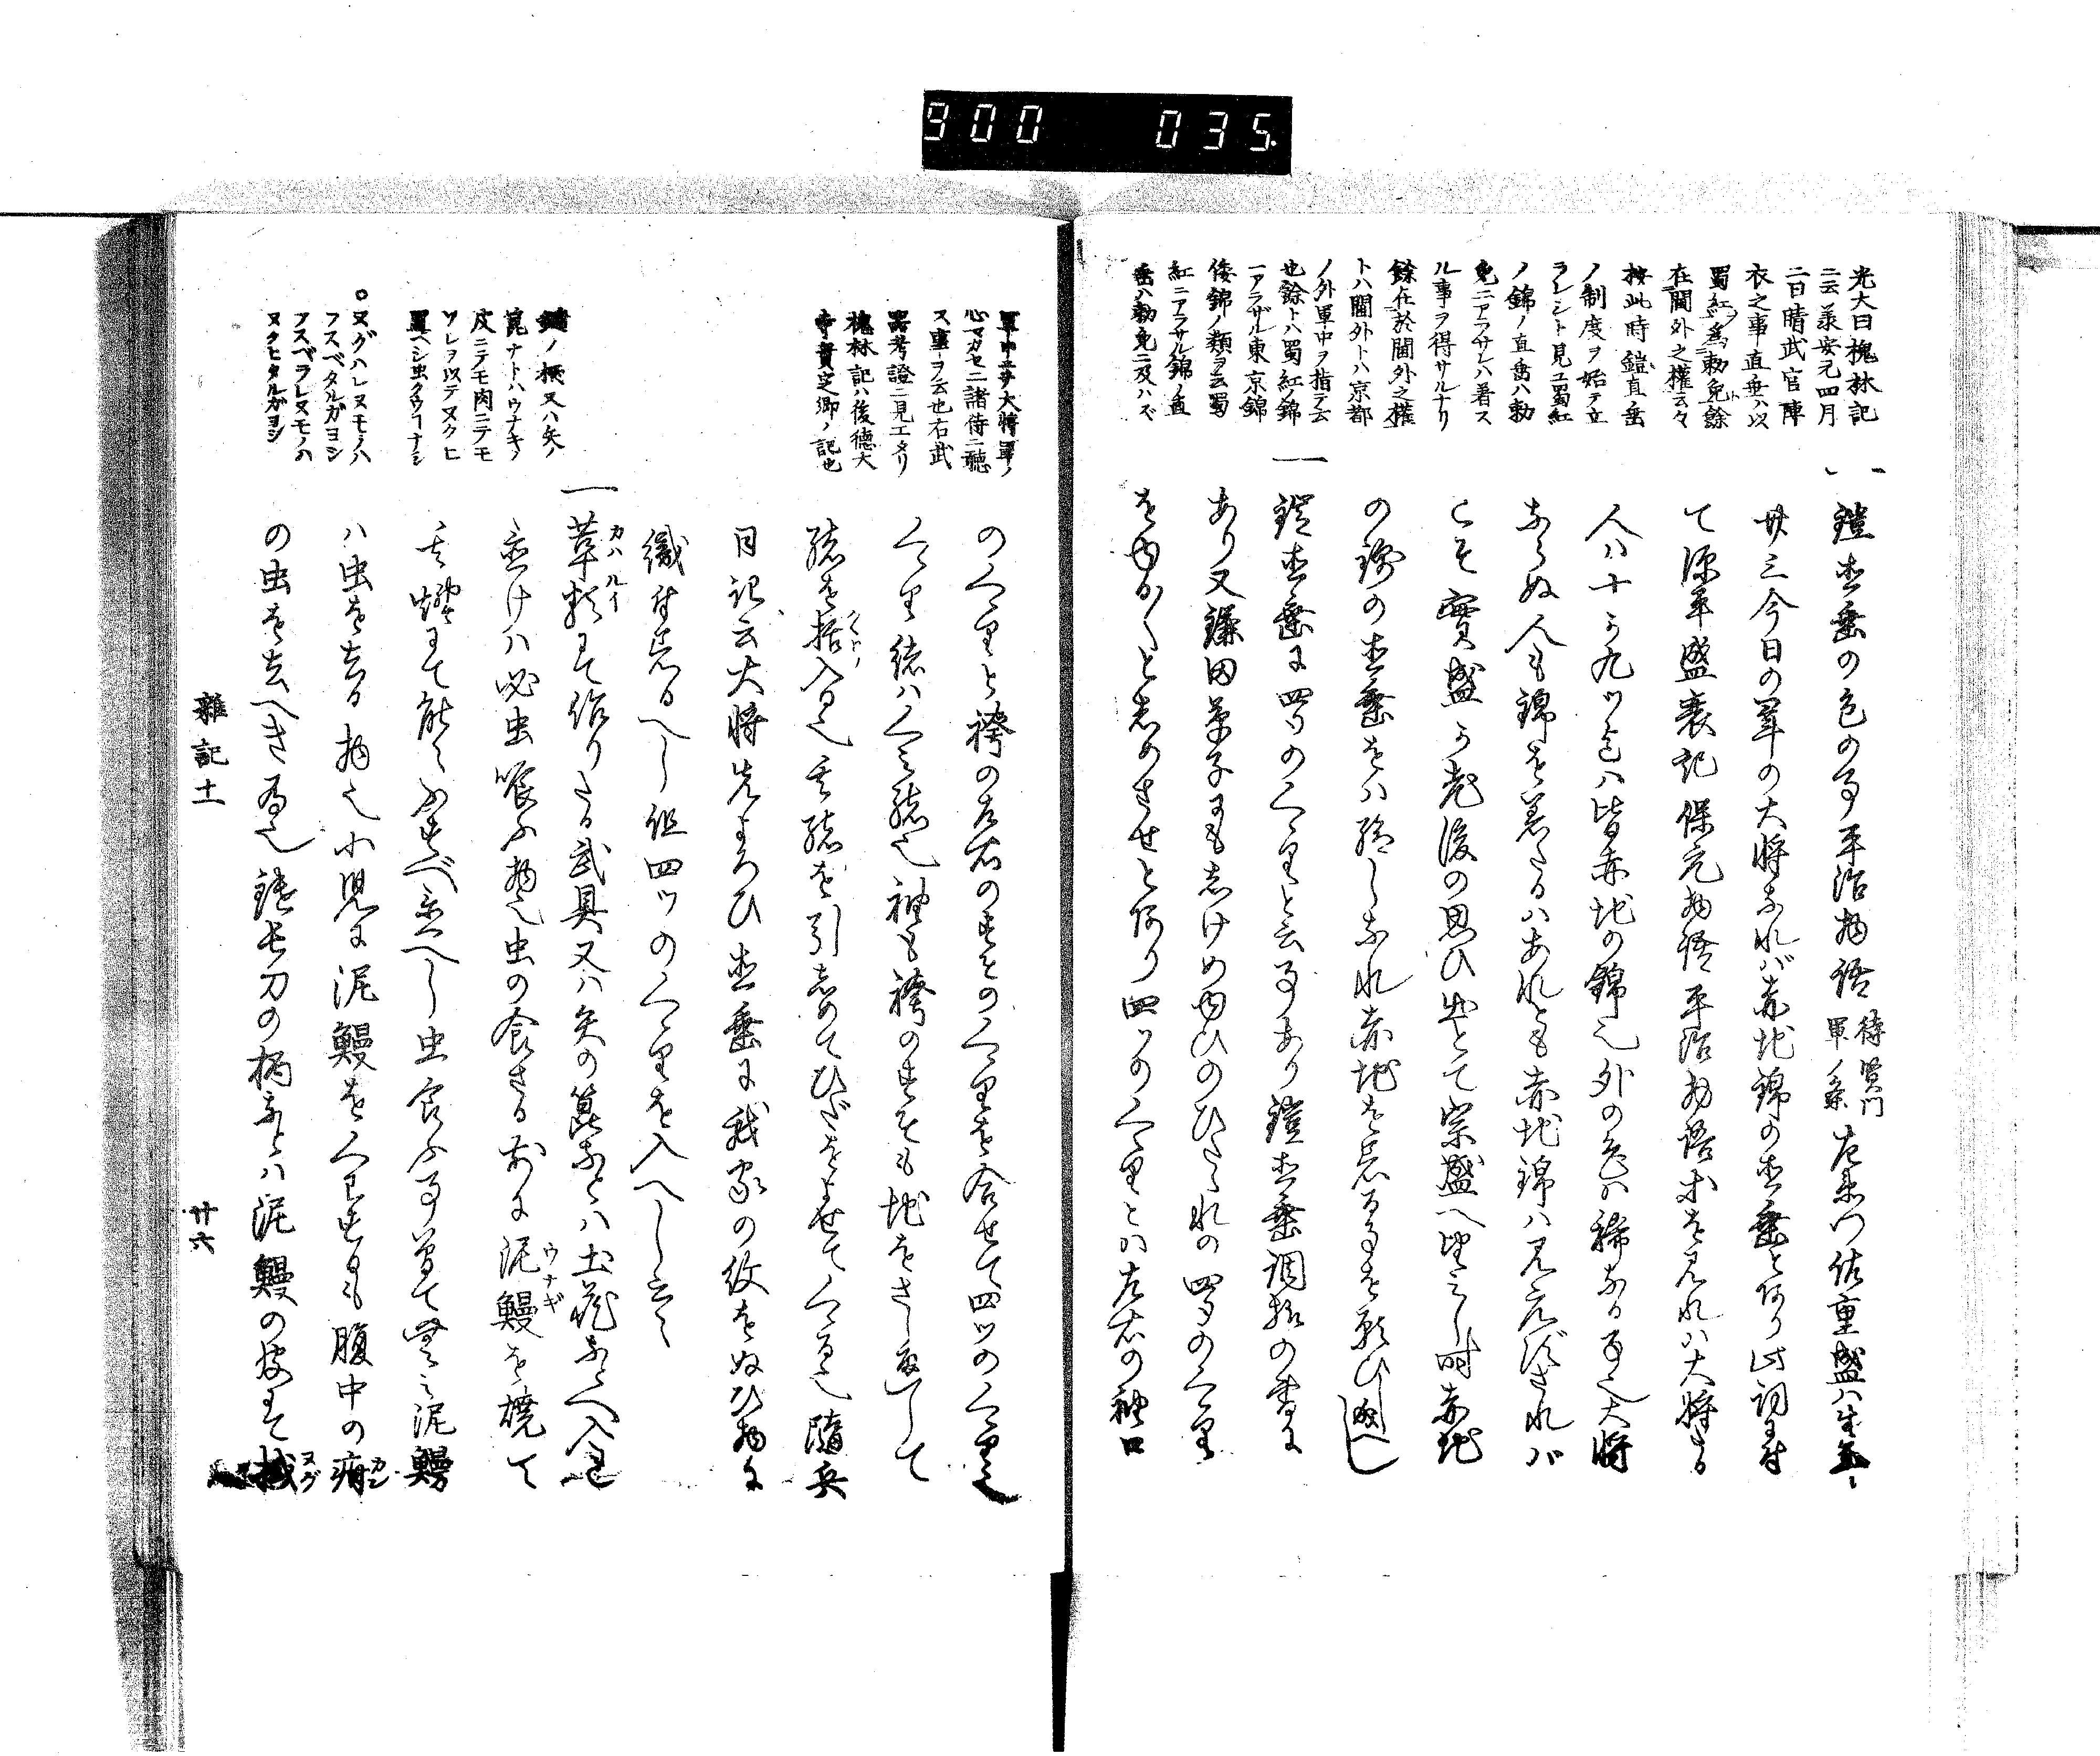 900 035.
光大曰槐林記
ニ云承安元四月
二日晴武官陣
衣之事直垂ハ以
蜀紅為勅免餘
在閫外之權云々
按此時鎧直垂
ノ制度ヲ始テ立
ラレシト見エ蜀紅
ノ錦ノ直垂ハ勅
免ニアラサレハ着ス
ル事ヲ得サルナリ
餘在於閫外之權
トハ閫外トハ京都
ノ外軍中ヲ指テ云
也餘トハ蜀紅ノ錦
ニアラザル東京錦
倭錦ノ類ヲ云蜀
紅ニアラサル錦ノ直
垂ハ勅免ニ及ハズ
一鎧直垂の色の事平治物語待賢門軍ノ条左衛門佐重盛ハ生年
廿三今日の軍の大将なれバ赤地錦の直垂とあり此詞に付
て源平盛衰記保元物語平治物語等を見れハ大将たる
人ハ十か九ツ迄ハ皆赤地の錦也外の色ハ稀なる事也大将
ならぬ人も錦を着たるハあれとも赤地錦ハ見えずされバ
こそ實盛か老後の思ひ出とて宗盛へ望ミし時赤地
の錦の直垂をハ給ハしなれ赤地を着る事を願ひし成へし
一鎧直垂に四ツのくゝりと云事あり鎧直垂調様の書に
あり又鎌田草子にもしけめゆひのひたゝれの四ツのくゝり
をゆるゝとしめさせとあり四ツのくゝりとハ左右の袖口
軍中ニテ大将軍ノ
心マカセニ諸侍ニ聴
ス事ヲ云也右武
器考證ニ見エタリ
槐林記ハ後徳大
寺實定卿ノ記也
のくゝりと袴の左右のすそのくゝりを合せて四ツのくゝり也
くゝり緒ハくミ緒也袖も袴のすそも地をさし返して
緒を括入る也其緒を引しめてひだをよせてくゝる也随兵
日記云大将先よろひ直垂に我家の紋をぬひ物に
織付着るへし紐四ツのくゝりを入へし云々
鑓ノ柄又ハ矢ノ
箆ナトハウナキノ
皮ニテモ肉ニテモ
ソレヲ以テヌクヒ
置ヘシ虫クウヿナシ
一革類カハルイにて作りたる武具又ハ矢の箆なとハ土蔵なとへ入レ
置けハ必虫喰ふ物也虫の食さる前に泥鰻ウナギを焼て
其煙にて能くふすべ置へし虫食ふ事曽て無シ泥鰻
ハ虫を去る物也小児に泥鰻をくハするも腹中の疳カン
の虫を去へき為也鑓長刀の柄なとハ泥鰻の皮にて拭ヌグ
○ヌグハレヌモノハ
フスベタルガヨシ
フスベラレヌモノハ
ヌクヒタルガヨシ
雑記十一
廿六